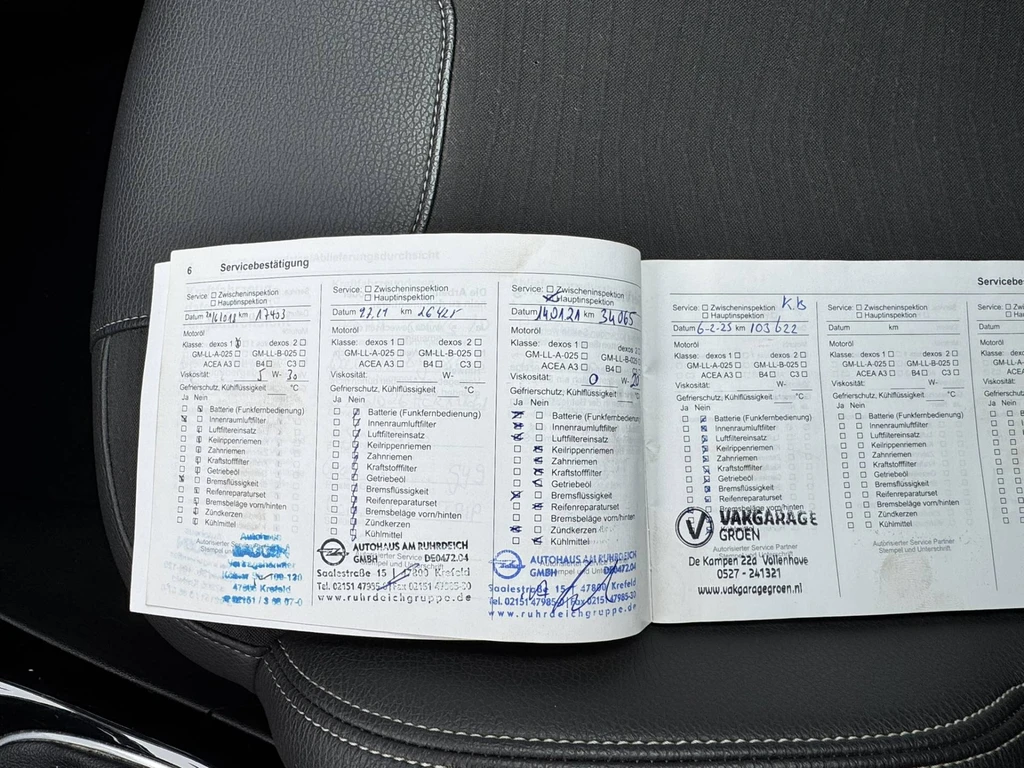 6 Servicebestätigung
Service: ☐ Zwischeninspektion
☐ Hauptinspektion
Datum km 17403
Motoröl
Klasse: dexos 1 dexos 2 ☐
GM-LL-A-025 ☐ GM-LL-B-025 ☐
ACEA A3 ☐ B4 ☐ C3 ☐
Viskosität: 5 W- 30
Gefrierschutz, Kühlflüssigkeit °C
Ja Nein
Batterie (Funkfernbedienung)
Innenraumluftfilter
Luftfiltereinsatz
Keilrippenriemen
Zahnriemen
Kraftstofffilter
Getriebeöl
Bremsflüssigkeit
Reifenreparaturset
Bremsbeläge vorn/hinten
Zündkerzen
Kühlmittel
47805 Krefeld
Service: ☐ Zwischeninspektion
☐ Hauptinspektion
Datum km
Motoröl
Klasse: dexos 1 ☐ dexos 2 ☐
GM-LL-A-025 ☐ GM-LL-B-025 ☐
ACEA A3 ☐ B4 ☐ C3 ☐
Viskosität: W-
Gefrierschutz, Kühlflüssigkeit °C
Ja Nein
Batterie (Funkfernbedienung)
Innenraumluftfilter
Luftfiltereinsatz
Keilrippenriemen
Zahnriemen
Kraftstofffilter
Getriebeöl
Bremsflüssigkeit
Reifenreparaturset
Bremsbeläge vorn/hinten
Zündkerzen
Kühlmittel
AUTOHAUS AM RUHRDEICH
GMBH DE0472.04
Saalestraße 15 47800 Krefeld
Tel. 02151 47985-0 Fax 02151 47985-30
www.ruhrdeichgruppe.de
Service: ☐ Zwischeninspektion
Hauptinspektion
Datum 140121 km 34065
Motoröl
Klasse: dexos 1 ☐ dexos 2 ☐
GM-LL-A-025 ☐ GM-LL-B-025 ☐
ACEA A3 ☐ B4 ☐ C3 ☐
Viskosität: 0 W- 20
Gefrierschutz, Kühlflüssigkeit °C
Ja Nein
Batterie (Funkfernbedienung)
Innenraumluftfilter
Luftfiltereinsatz
Keilrippenriemen
Zahnriemen
Kraftstofffilter
Getriebeöl
Bremsflüssigkeit
Reifenreparaturset
Bremsbeläge vorn/hinten
Zündkerzen
Kühlmittel
AUTOHAUS AM RUHRDEICH
GMBH DE0472.04
Saalestraße 15 47800 Krefeld
Tel. 02151 47985-0 Fax 02151 47985-30
www.ruhrdeichgruppe.de
Servicebes
Service: ☐ Zwischeninspektion
☐ Hauptinspektion
Datum 6-2-25 km 103622
Motoröl
Klasse: dexos 1 ☐ dexos 2 ☐
GM-LL-A-025 ☐ GM-LL-B-025 ☐
ACEA A3 ☐ B4 ☐ C3 ☐
Viskosität: W-
Gefrierschutz, Kühlflüssigkeit °C
Ja Nein
Batterie (Funkfernbedienung)
Innenraumluftfilter
Luftfiltereinsatz
Keilrippenriemen
Zahnriemen
Kraftstofffilter
Getriebeöl
Bremsflüssigkeit
Reifenreparaturset
Bremsbeläge vorn/hinten
Zündkerzen
Kühlmittel
VAKGARAGE
GROEN
Autorisierter Service Partner
Stempel und Unterschrift
De Kampen 22a Vollenhove
0527 - 241321
www.vakgaragegroen.nl
Service: ☐ Zwischeninspektion
☐ Hauptinspektion
Datum km
Motoröl
Klasse: dexos 1 ☐ dexos 2 ☐
GM-LL-A-025 ☐ GM-LL-B-025 ☐
ACEA A3 ☐ B4 ☐ C3 ☐
Viskosität: W-
Gefrierschutz, Kühlflüssigkeit °C
Ja Nein
Batterie (Funkfernbedienung)
Innenraumluftfilter
Luftfiltereinsatz
Keilrippenriemen
Zahnriemen
Kraftstofffilter
Getriebeöl
Bremsflüssigkeit
Reifenreparaturset
Bremsbeläge vorn/hinten
Zündkerzen
Kühlmittel
Autorisierter Service Partner
Stempel und Unterschrift
Service: ☐
Datum
Motoröl
Klasse: dexos
GM-LL-A-0
ACEA
Viskosität:
Gefrierschutz,
Ja Nein